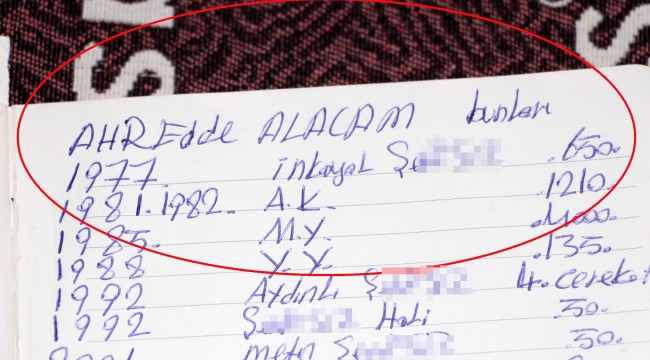 AHREdde ALACAM bunları
1977. inkayal Ş .650.
1981.1982. A.K. .1210.
1985. M.Y. .4000.
1988 Y.Y. .135.
1992 Aydınlı Ş 4.cereket
1992 Ş Hali 50.
metin Ş 50.